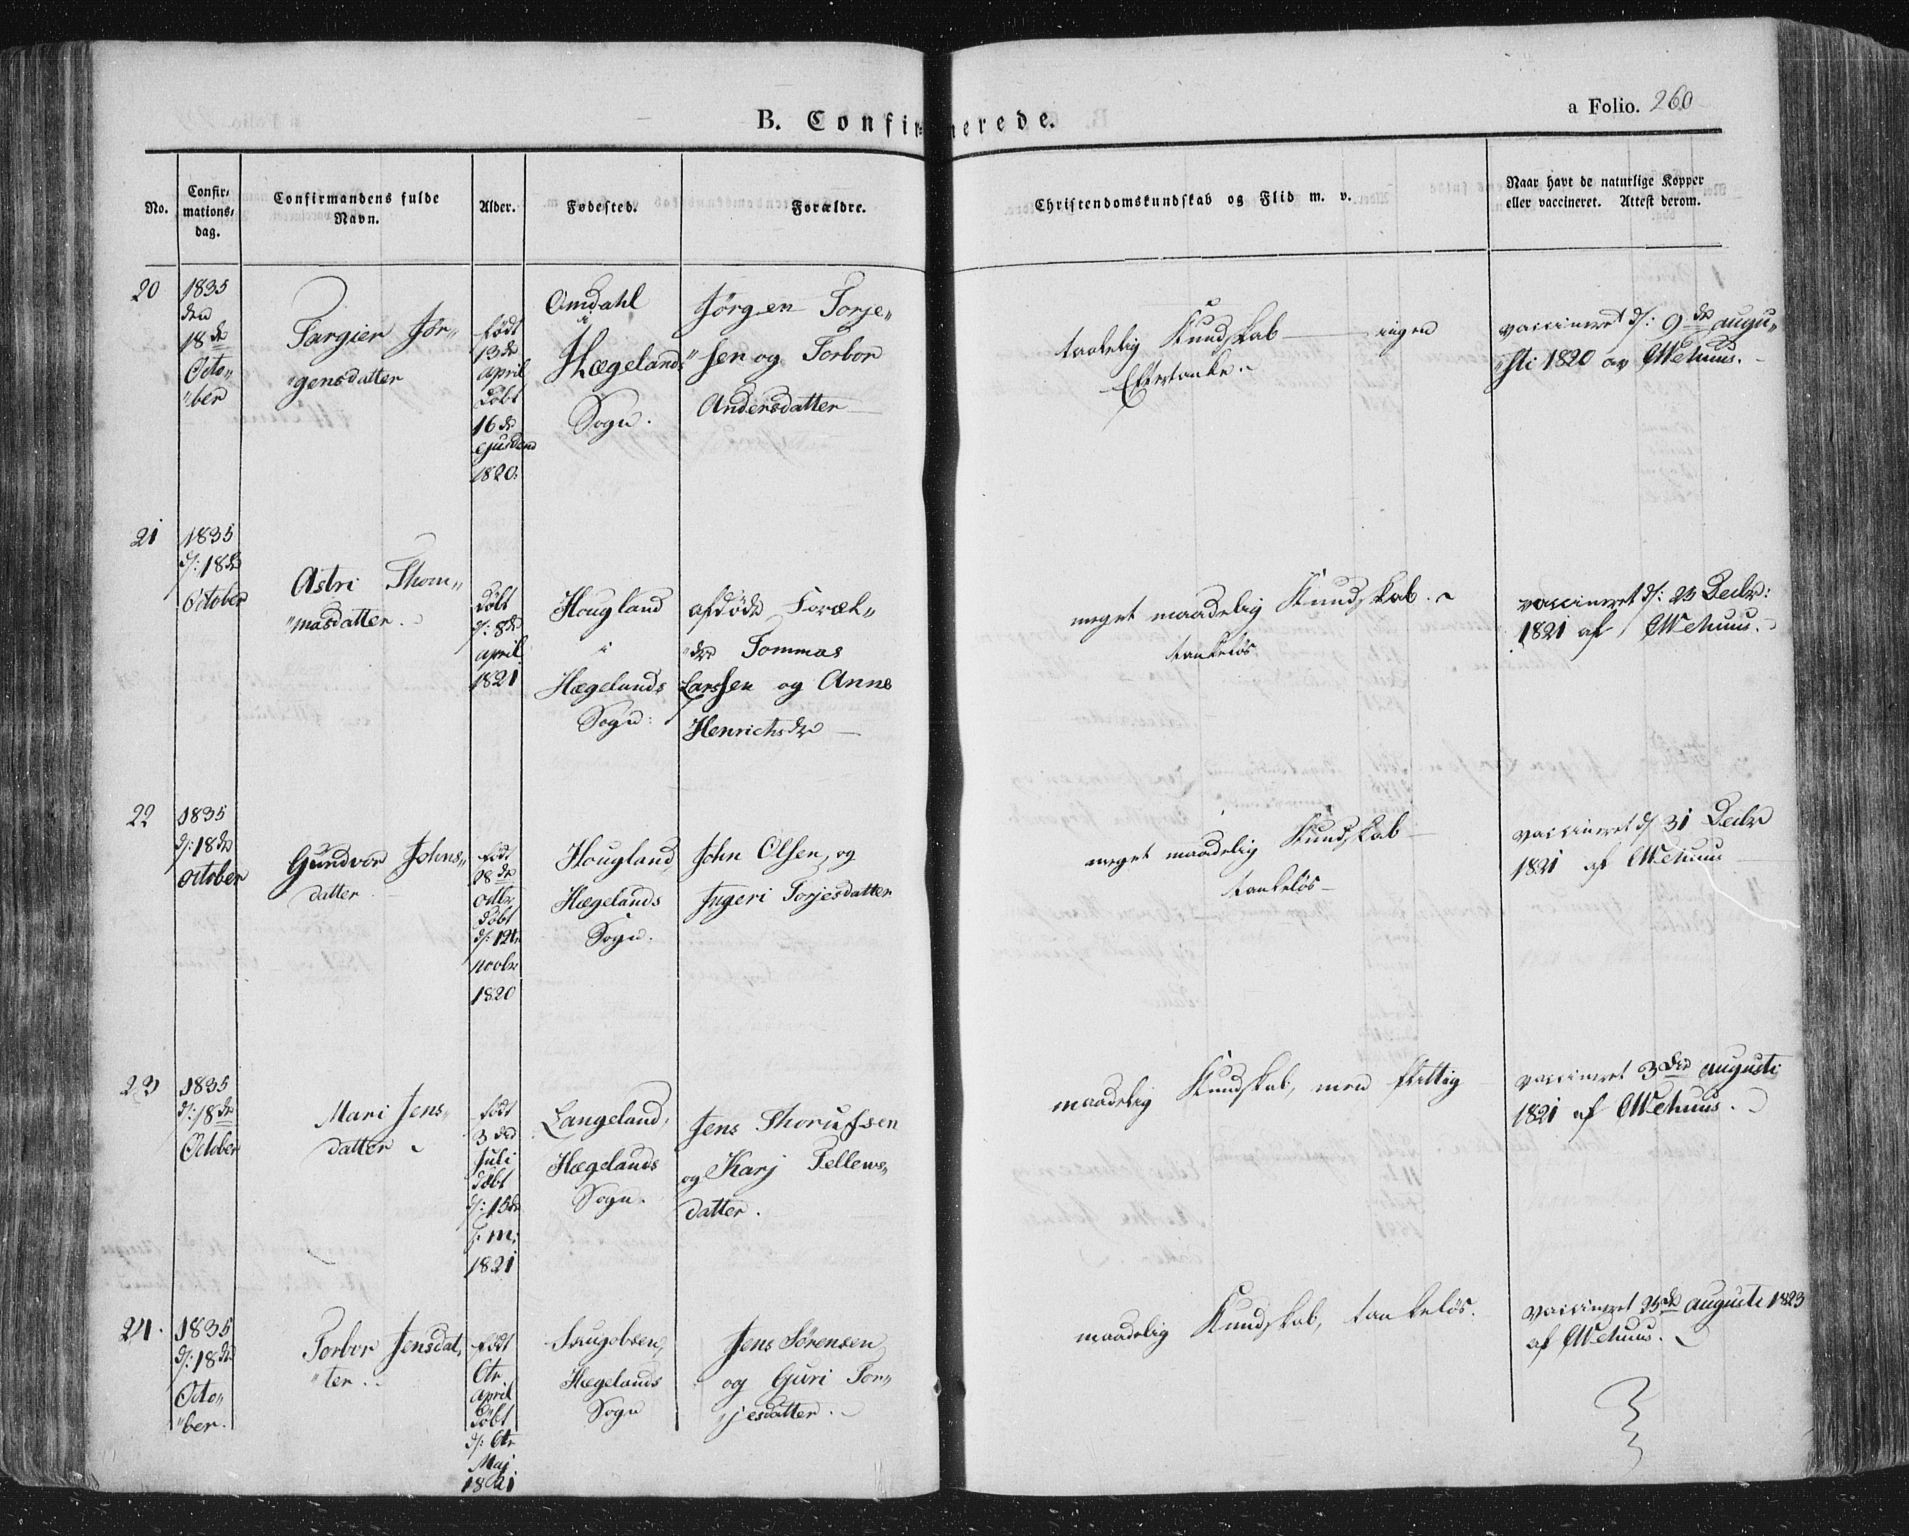 B. Confirmerede.
a Folio. 260
No.
Confir-
mations-
dag.
Confirmandens fulde
Navn.
Alder.
Fødested.
Forældre.
Christendomskundskab og Flid m. v.
Naar havt de naturlige Kopper
eller vaccineret. Attest derom.
20
1835
den
18de
Octo"
"ber
Targier Jör"
"gensdatter
född
13de
april
döbt
16de
ejusdem
1820.
Omdahl
i
Hægelands
Sogn.
Jörgen Torje"
"sen og Torbor
Andersdatter
taalelig Kundskab — ingen
Eftertanke.
vaccineret d/: 9de augu"
"sti 1820 av Mehuus.
21
1835
d/: 18de
October
Astri Thom"
"masdatter.
döbt
d/: 8de
april
1821
Hougland
i
Hægelands
Sogn:
afdöde Foræl"
"dre Tommas
Larssen og Anne
Henrichsdr
meget maadelig Kundskab.
tankelös
vaccineret d/: 23 Decbr:
1821 af Mehuus.
22
1835
d/: 18de
october
Gundvor Johns"
datter
född
28de
octbr
döbt
d/: 12te
novbr
1820
Hougland,
Hægelands
Sogn.
John Olsen, og
Ingeri Torjesdatter
meget maadelig Kundskab
tankelös
vaccineret d/ 31 Decbr
1821 af Mehuus
23
1835
d/: 18de
October
Mari Jens"
datter
född
3die
Juli
döbt
d/: 15de
s: m:
1821
Langeland,
Hægelands
Sogn.
Jens Thorufsen
og Karj Tellews"
datter.
maadelig Kundskab, men flittig
vaccineret 3die augusti
1821 af Mehuus.
24.
1835
d/: 18de
Octo"
"ber.
Torbor Jensdat"
"ter.
född
6te
april
döbt
d/: 6te
Maj
1821
Hægelands
Sogn
Jens Sörensen
og Guri Tor"
"jesdatter.
maadelig Kundskab, tankelös.
vaccineret 25de augusti 1823
af Mehuus.